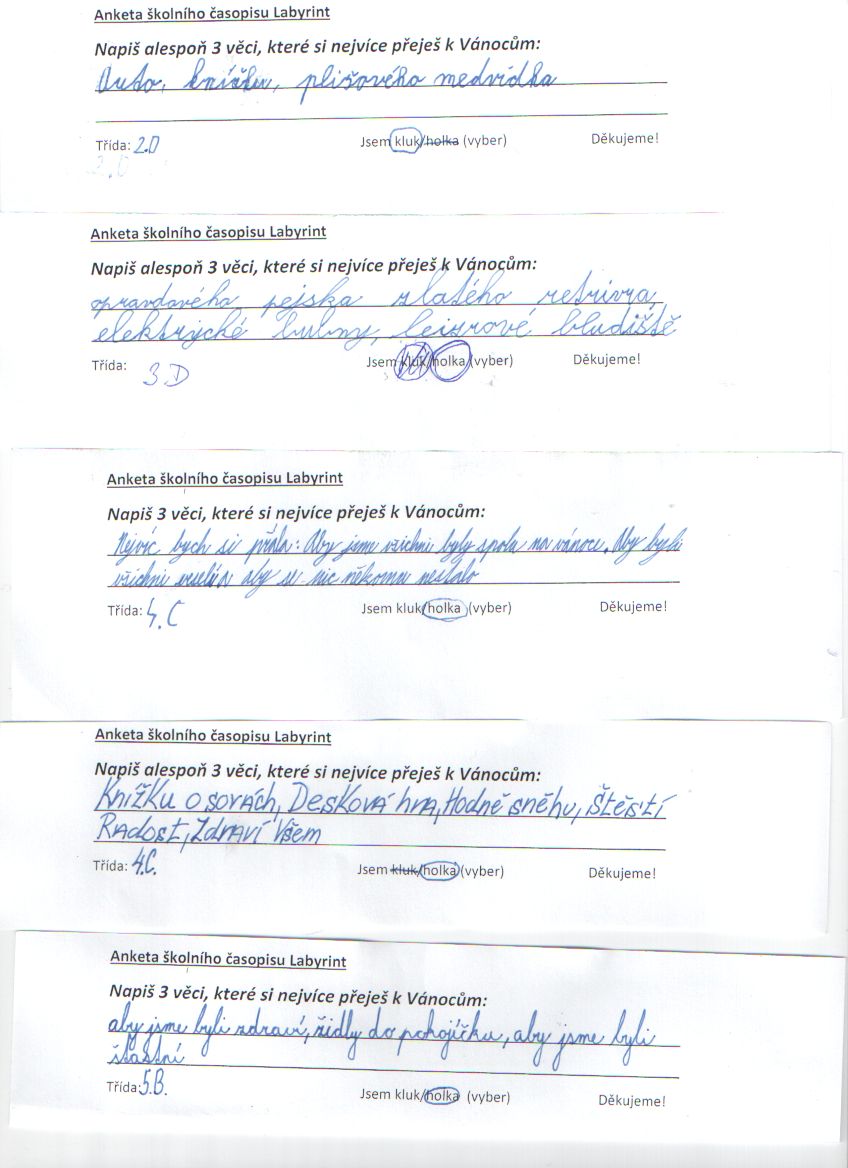 Anketa školního časopisu Labyrint
Napiš alespoň 3 věci, které si nejvíce přeješ k Vánocům:
Auto, knížku, plišového medvídka
Třída: 2.D Jsem kluk/holka (vyber) Děkujeme!
2.D
Anketa školního časopisu Labyrint
Napiš alespoň 3 věci, které si nejvíce přeješ k Vánocům:
opravdového pejska zlatého retrívra,
elektrycké bubny, leisrové bludiště
Třída: 3D Jsem kluk/holka/(vyber) Děkujeme!
Anketa školního časopisu Labyrint
Napiš 3 věci, které si nejvíce přeješ k Vánocům:
Nejvíc bych si přála: Aby jsme všichni byly spolu na vánoce. Aby byli
všichni veselí a aby se nic někomu nestalo
Třída: 4.C Jsem kluk/holka (vyber) Děkujeme!
Anketa školního časopisu Labyrint
Napiš alespoň 3 věci, které si nejvíce přeješ k Vánocům:
Knížku o sovách, Desková hra, Hodně sněhu, Štěstí
Radost, Zdraví Všem
Třída: 4.C. Jsem kluk/holka (vyber) Děkujeme!
Anketa školního časopisu Labyrint
Napiš 3 věci, které si nejvíce přeješ k Vánocům:
aby jsme byli zdraví, židly do pokojíčku, aby jsme byli
štastní
Třída: 5.B. Jsem kluk/holka (vyber) Děkujeme!